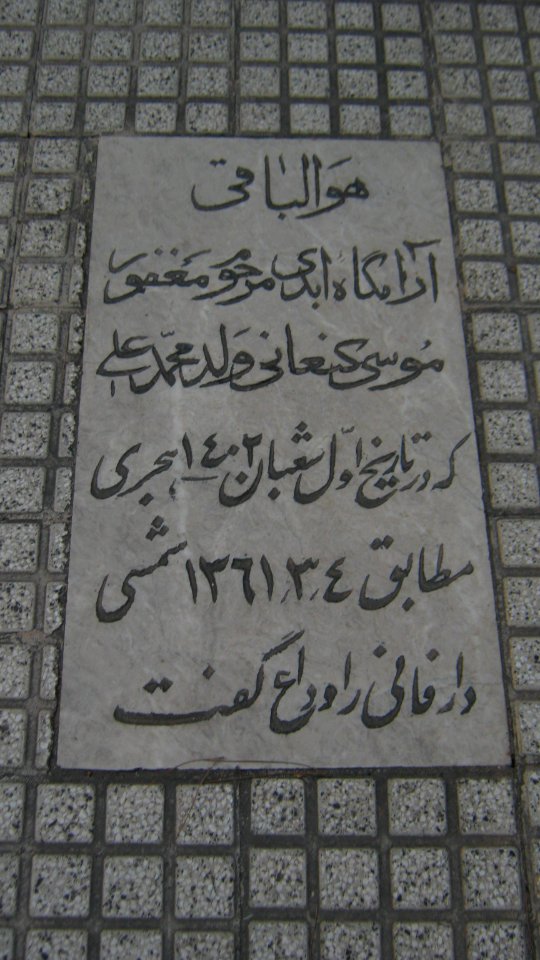 هوالباقی
آرامگاه ابدی مرحوم مغفور
موسی کنعانی ولد محمّد علی
که در تاریخ اوّل شعبان ۱٤۰۲ هجری
مطابق ٤ر۳ر۱۳٦۱ شمسی
دار فانی را وداع گفت